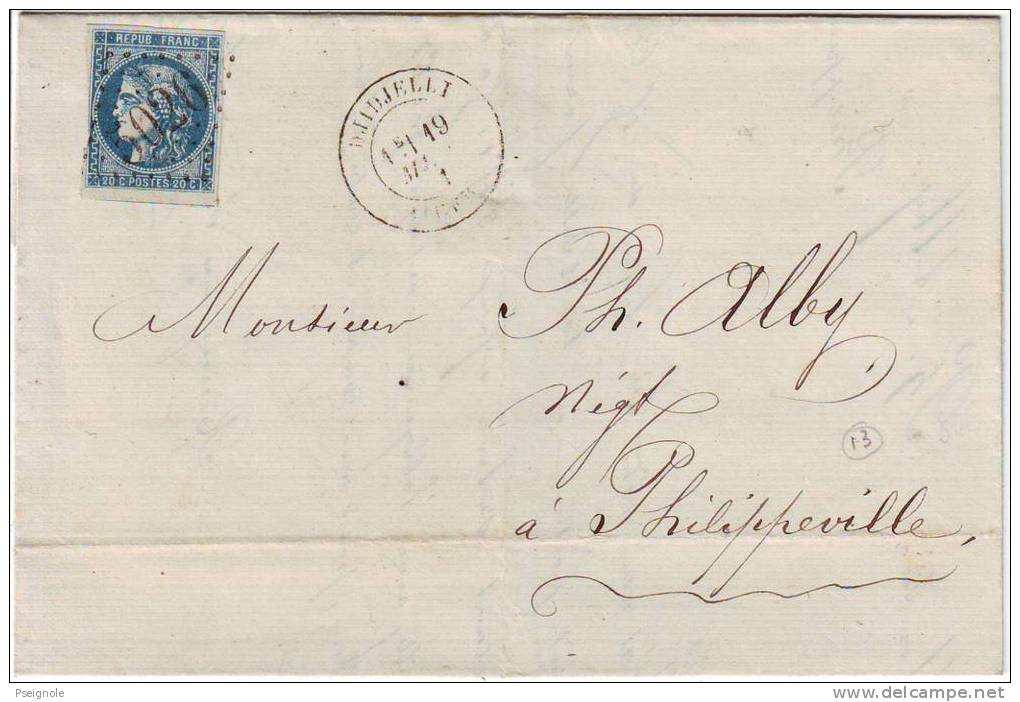 REPUB FRANC
20 C POSTES 20 C
DJIDJELLI
19
1
Monsieur Ph. Alby
Négt
à Philippeville,
13
Pseignole
delcampe.net